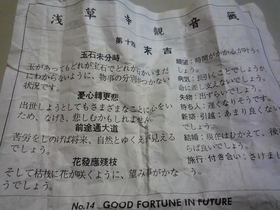 浅草寺観音籤
第十四 末吉
玉石未分時
玉があってもどれが宝石でどれが石かいまだ
にわからないように、物事の分別のつかない
状況です。
憂心転更悲
出世しようとしてもさまざまなことに心をい
ため、なげき、悲しむかもしれません。
前途通大道
苦労をしのげば将来、自然とゆくえが見える
でしょう。
花發應残枝
そして枯枝に花が咲くように、望み事がかな
うでしょう。
願望:時間がかかるが叶う
でしょう。
病気:
命に差し支えないでしょう。
失物:出ずらいでしょう。
待ち人:遅くなりそうです。
新築・引越:あまり良くな
いでしょう。
旅行・付き合い:さけま
No.14 GOOD FORTUNE IN FUTURE